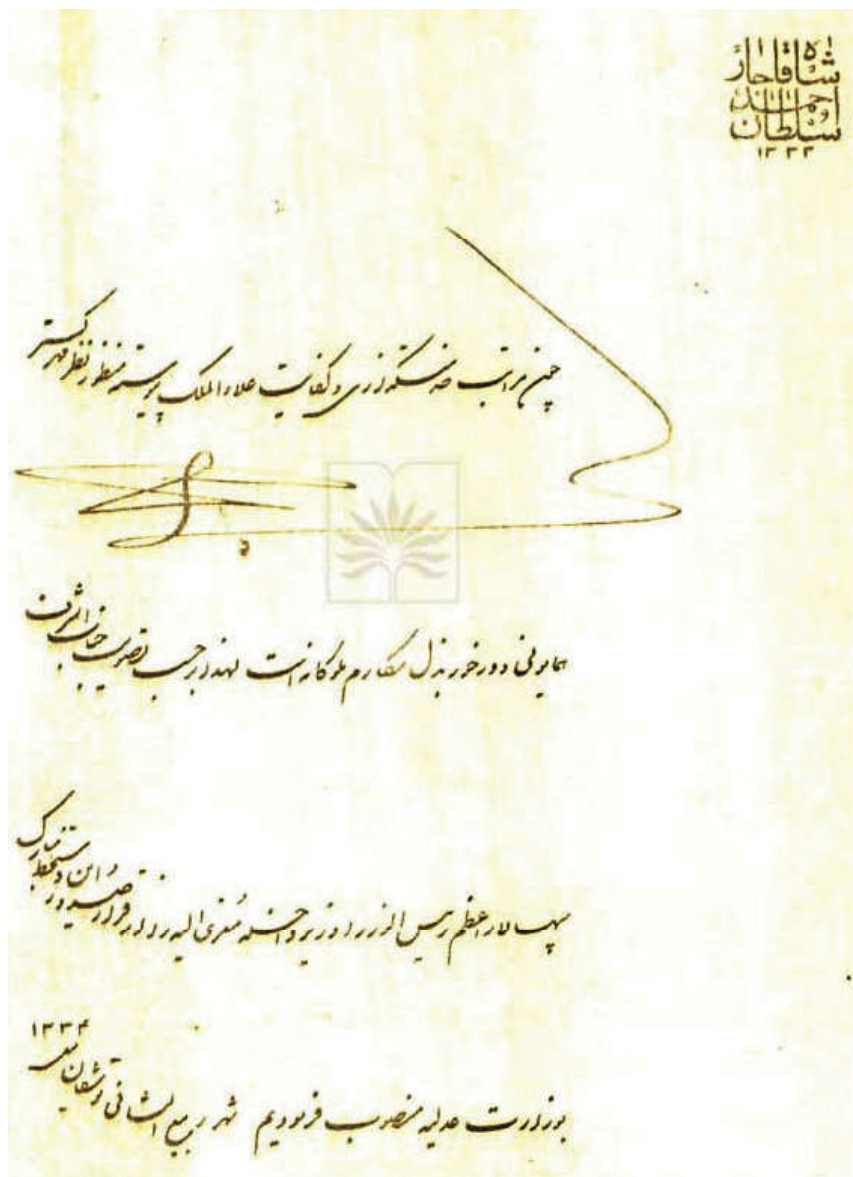 شاه قاجار
احمد
سلطان
۱۳۳۳
چون مراتب خدمتگذاری و کفایت علاءالملک پیوسته منظور نظر مهر گستر
همایونی و درخور بذل مکارم ملوکانه است لهذا برحسب تصویب جناب اشرف
سپهسالار اعظم رئیس الوزراء و وزیر داخله معزی الیه را از قرار صدور این دستخط مبارک
بوزارت عدلیه منصوب فرمودیم شهر ربیع الثانی توشقان ئیل ۱۳۳۴